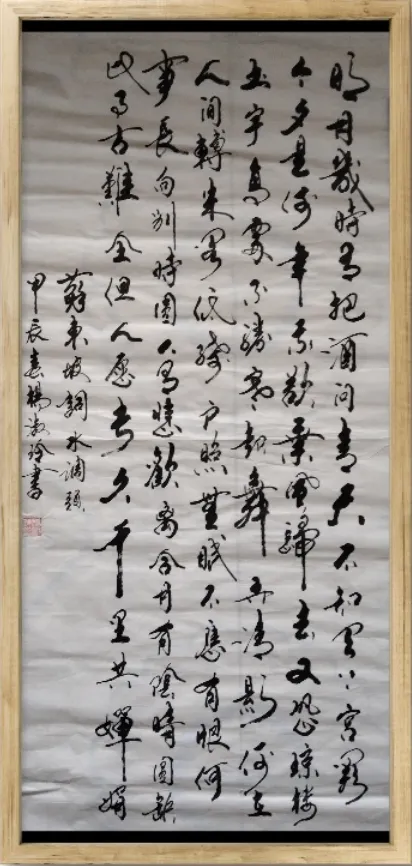 明月幾時有把酒問青天不知天上宮闕
今夕是何年我欲乘風歸去又恐琼楼
玉宇高處不勝寒起舞弄清影何在
人間轉朱閣低綺户照無眠不應有恨何
事長向别時圓人有悲歡離合月有陰晴圓缺
此事古難全但人愿長久千里共嬋娟
蘇東坡詞水调頭
甲辰春楊淑玲書